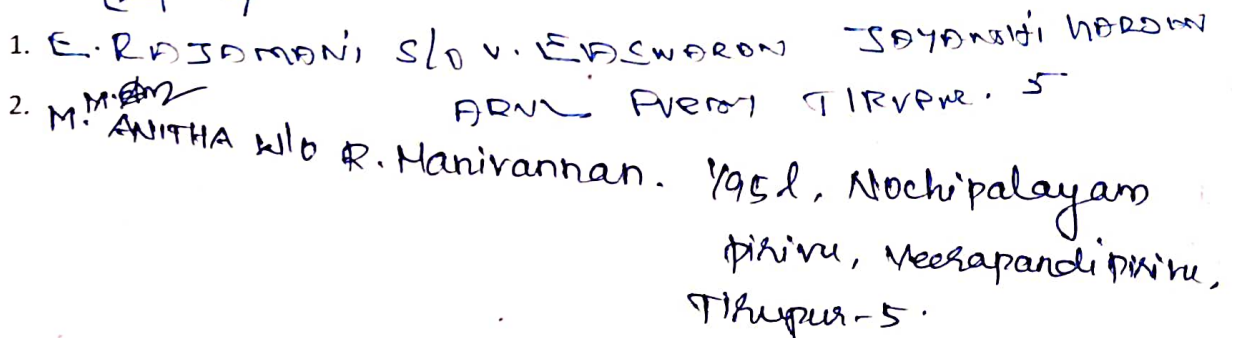 1. E. RAJAMANI S/o V. EASWARAN JAYANTHI GARDEN
ARUL PURAM TIRUPUR. 5
2. M. ANITHA W/o R. Manivannan. 1/95l, Nochipalayam
pirivu, Veerapandi pirivu,
Tirupur-5.